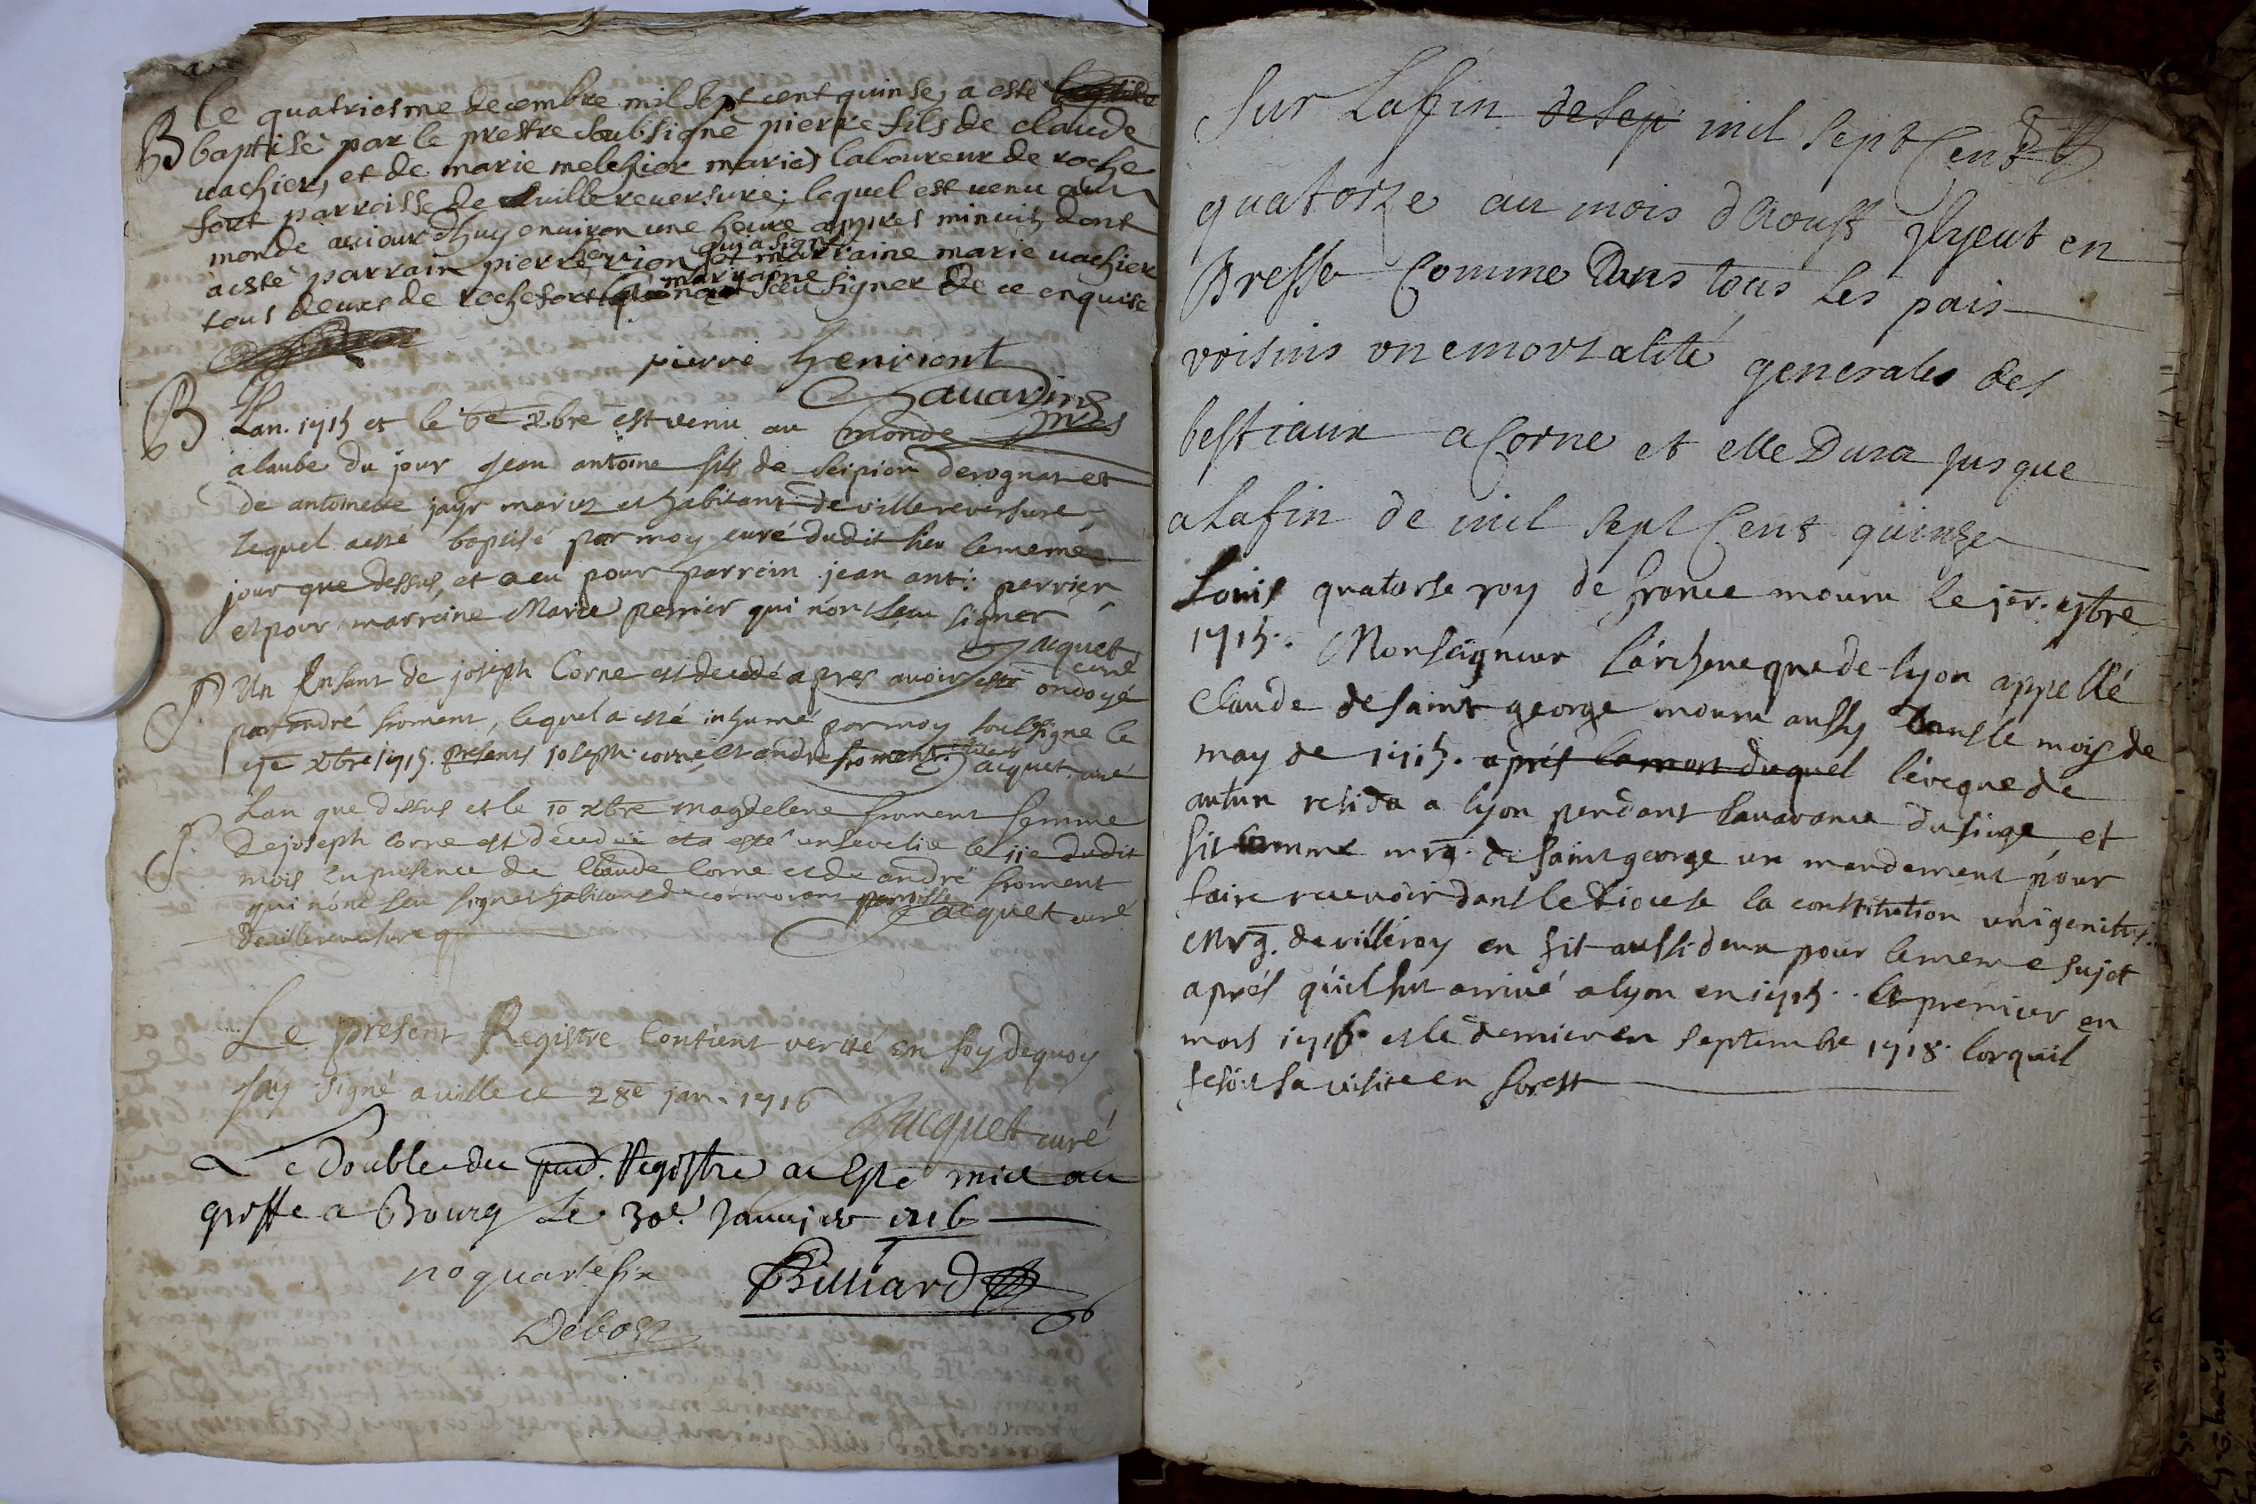 B Le quatriesme decembre mil sept cent quinse, a este
baptisè par le prestre soubsignè pierre fils de claude
vachier, et de marie melchior mariés laboureur de roche
fort parroisse de villereversure; lequel est venu au
monde aujourdhuy environ une heure appres minuit dont
a estè parrain pierre henrion qui a signé et marraine marie vachier
tous deux de rochefort marraine sceu signer de ce enquise
pierre henriont
Chavardin
B Lan. 1715 et le 6e xbre est venu au monde
a laube du jour Jean antoine fils de scipion derognat et
de antoinette jayr mariez et habitans de villereversure,
lequel a esté baptisé par moy curé dudit lieu le meme
jour que dessus, et a eu pour parrein jean ant: perrier
et pour marreine Marie perrier qui n'ont sceu signer
Jacquet curé
Un Enfant de joseph Corne est decedé apres avoir esté ondoyé
par andré froment, lequel a esté inhumé par moy soussigné le
9e xbre 1715. presents joseph corne et andre froment. Jacquet curé
Lan que dessus et le 10 xbre magdelene froment femme
de joseph Corne est décedée et a esté ensevelie le 11e dudit
mois en presence de Claude Corne et de andré froment
qui n'ont sceu signer habitans de cormorens parroisse
de villereversure Jacquet curé
Le present Registre Contient verité en foy dequoy
jay signé a ville ce 28e jan. 1716
Jacquet curé
Le double du pnt. Registre a esté mis au
greffe a Bourg Le 30e Janvier 1716
Billiard
Debost
Sur La fin de sep mil sept Cent
quatorze au mois d'Aoust Il y eut en
Bresse Comme Dans tous les pais
voisins une mortalité generale des
bestiaux a Corne et elle Dura jusque
a la fin de mil sept Cent quinze
Louis quatorse roy de france mouru le 1er. 7bre
1715. Monseigneur l'archeveque de lyon appellé
Claude de saint george mouru aussy dans le mois de
may de 1715. aprés la mort duquel l'évêque de
autun resida a lyon pendant la vacance du siege, et
fit comme mrg. de saint george un mandement pour
faire recevoir dans le diocese la constitution unigenitus.
Mrg. de villéroy en fit aussi deux pour le meme sujet
aprés qu'il fut arrivé a lyon en 1715. le premier en
mars 1716 et le dernier en septembre 1718. lorquil
fesoit sa visite en forest